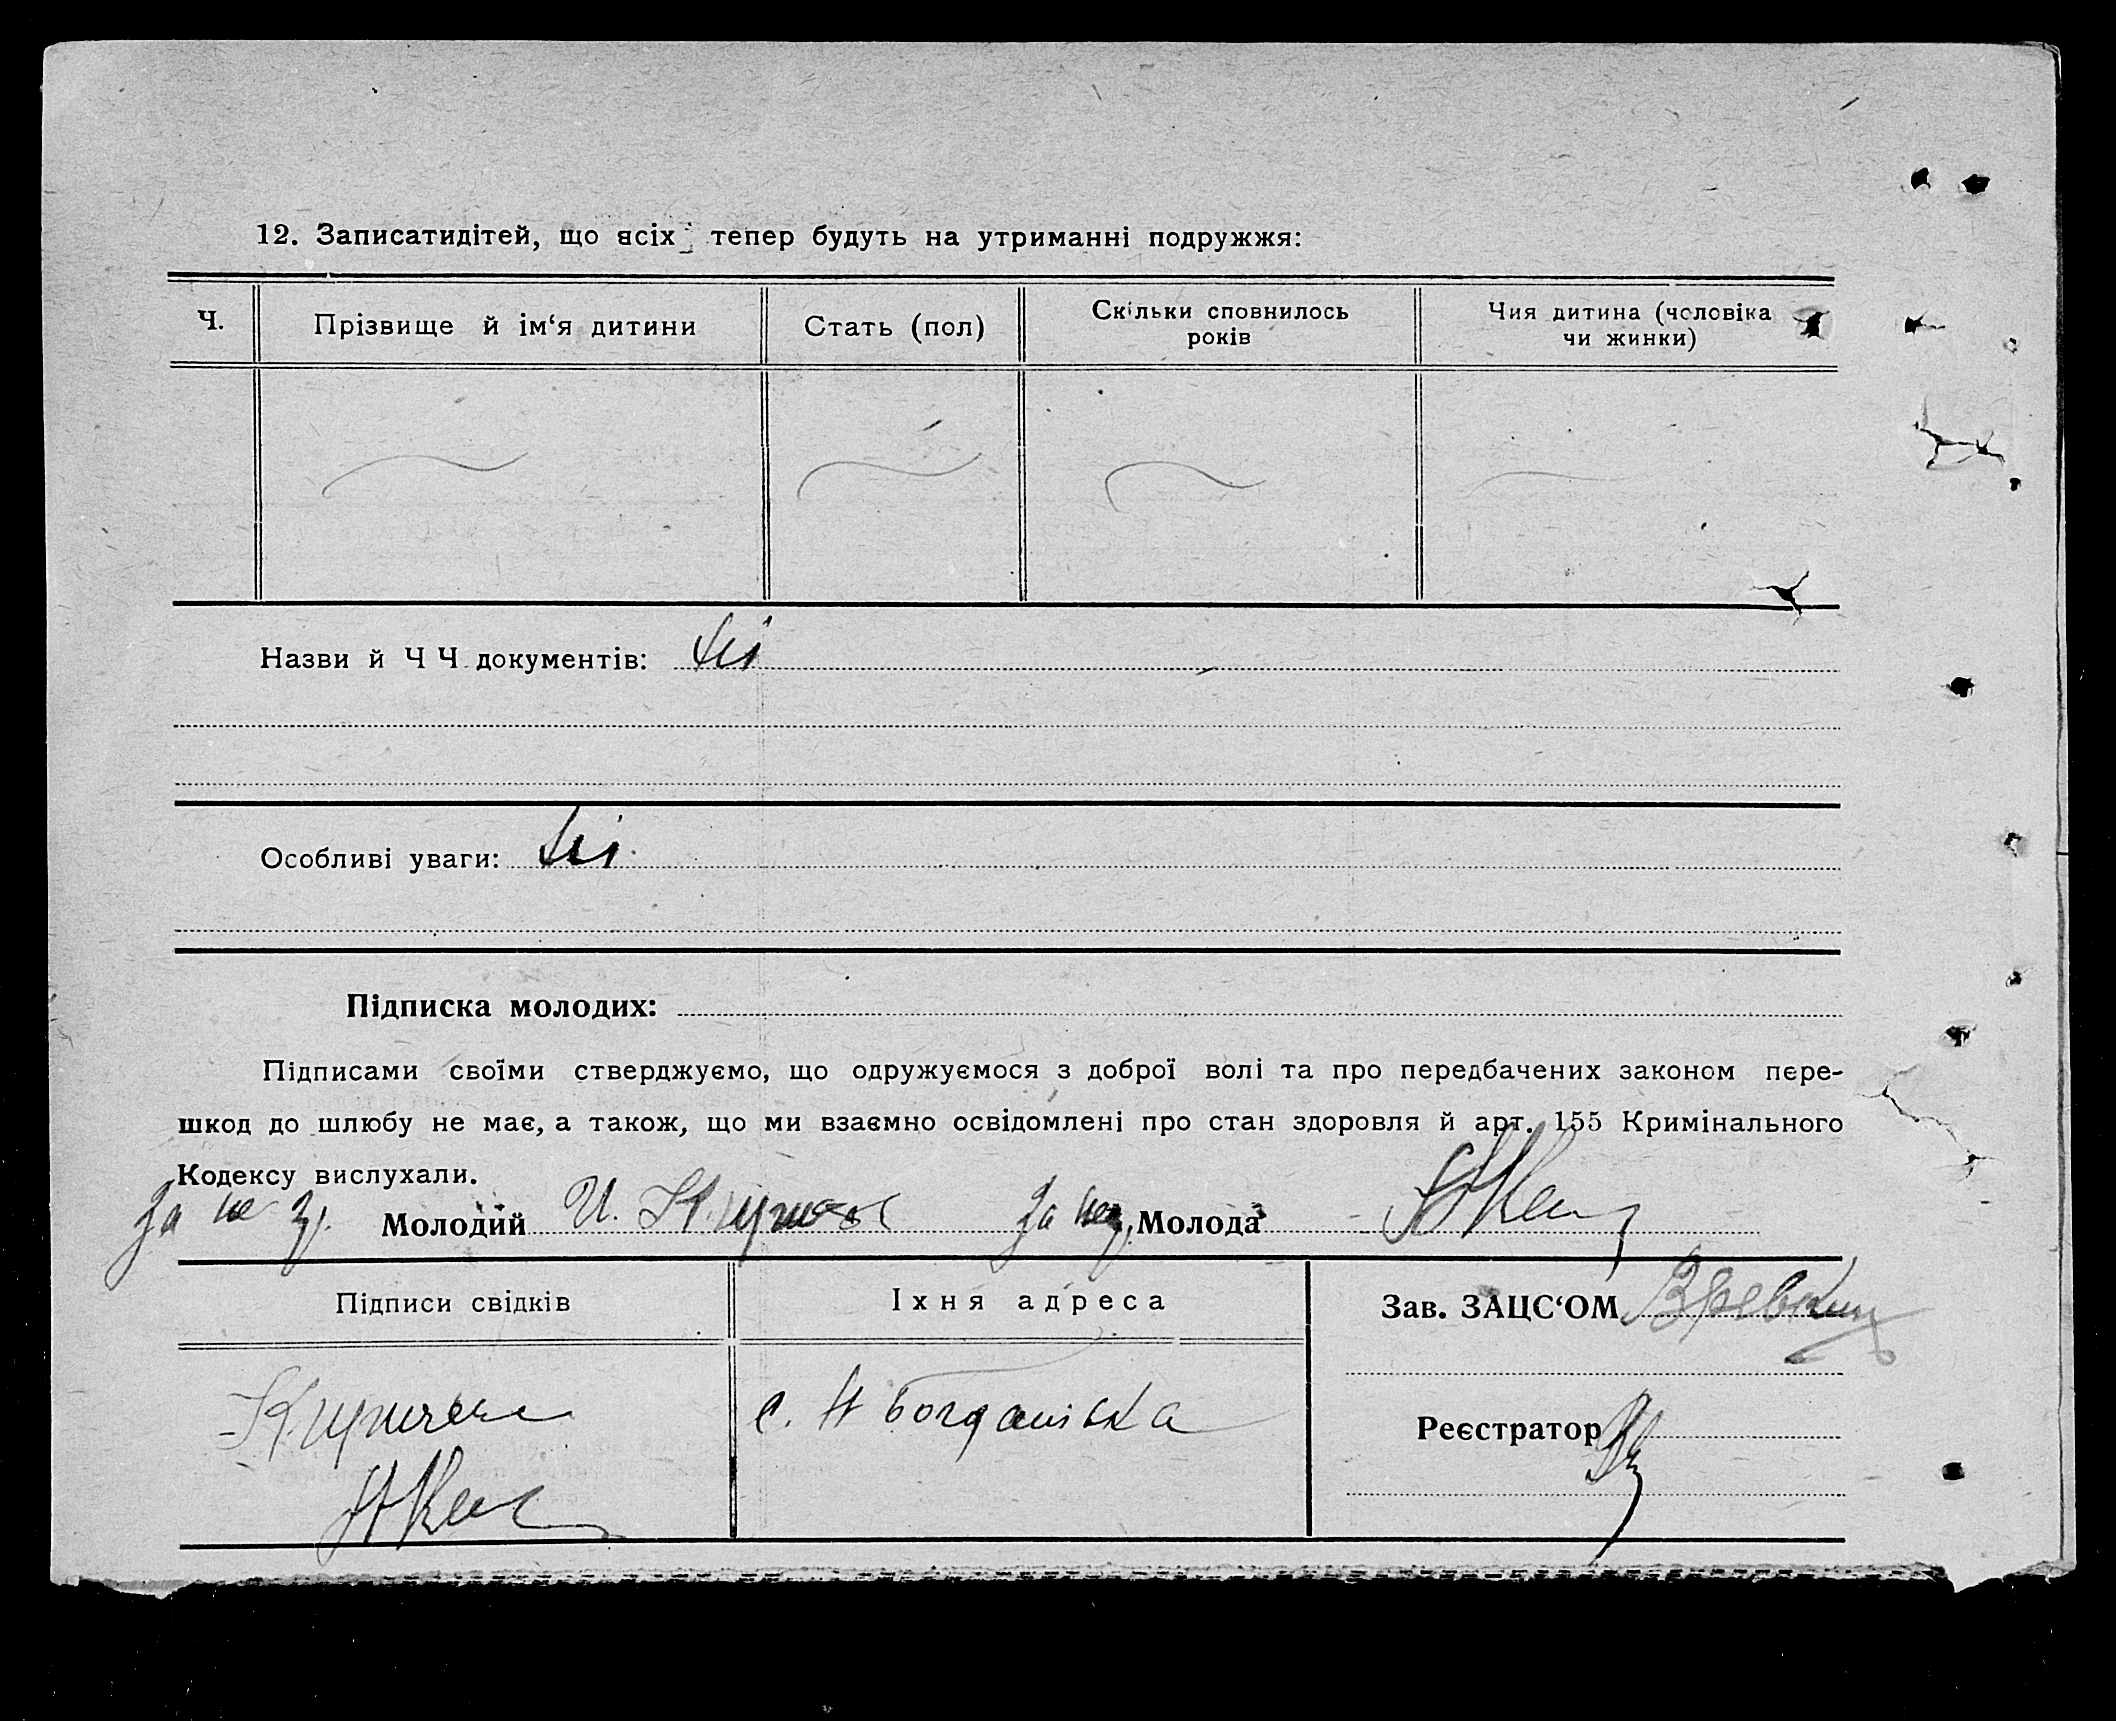 12. Записатидітей, що всіх тепер будуть на утриманні подружжя:
Ч.
Прізвище й ім‘я дитини
Стать (пол)
Скільки сповнилось
років
Чия дитина (чоловіка
чи жинки)
Назви й Ч Ч документів: ні
Особливі уваги: ні
Підписка молодих:
Підписами своїми стверджуємо, що одружуємося з доброї волі та про передбачених законом пере-
шкод до шлюбу не має, а також, що ми взаємно освідомлені про стан здоровля й арт. 155 Кримінального
Кодексу вислухали.
За не Молодий И. За Молода
Підписи свідків
Їхня адреса
Зав. ЗАЦС‘ОМ
с. Н Богданівка
Реєстратор